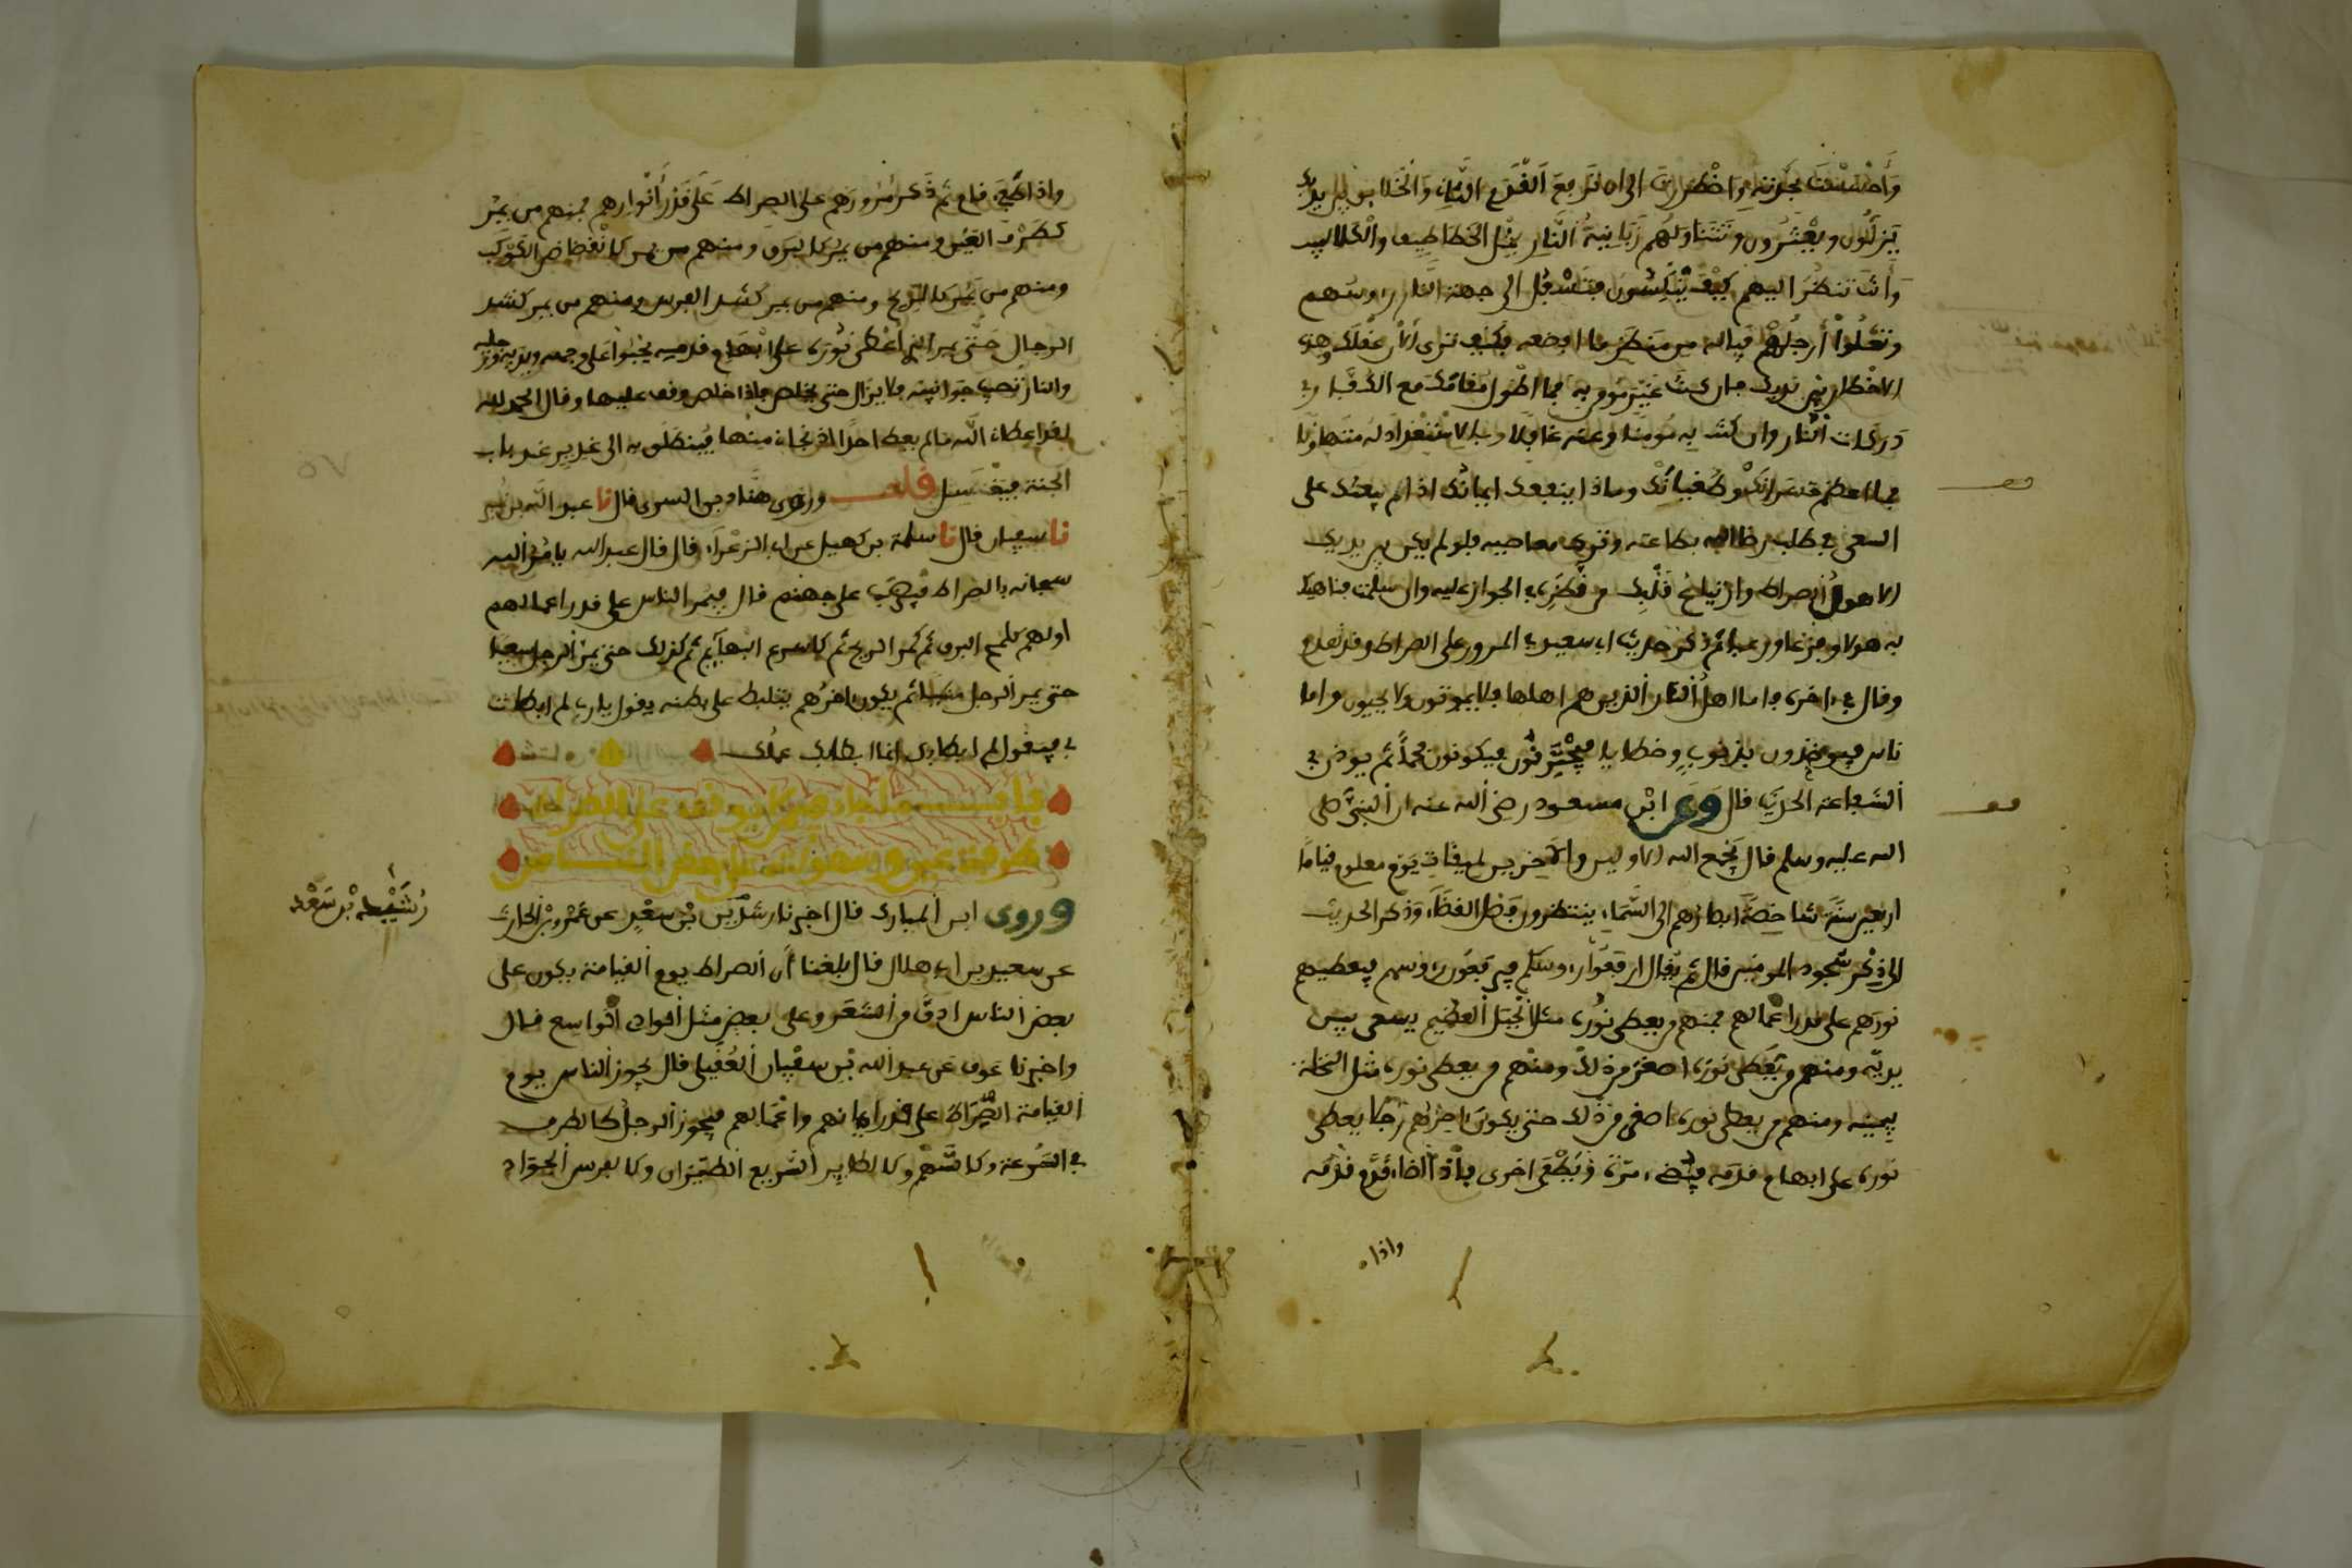 وأحسست بحدته واضطررت الى ان ترفع القدم الثاني والخلايق بين يديك
يزلون ويعثرون وتتناولهم زبانية النار مثل الخطاطيف والكلاليب
وأنت تنظر اليهم كيف ينكسون فتسفل الى جهة النار رءوسهم
وتعلوا أرجلهم فياله من منظر ما افضعه فكيف ترى الآن عقلك وهذه
الاخطار بين يديك فان كنت غير مومن به فما اطول مقامك مع الكفار في
دركات النار وان كنت به مومنا وعنه غافلا وبالاستعداد له متهاونا
فما اعظم خسرانك وطغيانك وماذا ينفعك ايمانك اذا لم يبعثك على
السعي في طلب رضا الله بطاعته وترك معاصيه فلو لم يكن بين يديك
الا هول الصراط وارتياع قلبك من خطر الجواز عليه وان سلمت فناهيك
به هولا وفزعا ورعبا ثم ذكر حديث ابي سعيد في المرور على الصراط وقد تقدم
وقال في اخره واما اهل النار الذين هم اهلها فلا يموتون ولا يحيون واما
ناس فيوخذون بذنوب وخطايا فيحترقون فيكونون فحما ثم يوذن في
الشفاعة الحديث قال وعن ابن مسعود رضي الله عنه ان النبي صلى
الله عليه وسلم قال يجمع الله الاولين والآخرين لميقات يوم معلوم قياما
اربعين سنة شاخصة ابصارهم الى السماء ينتظرون فصل القضاء وذكر الحديث
الى ذكر سجود المومنين قال ثم يقال ارفعوا رءوسكم فيرفعون رءوسهم فيعطيهم
نورهم على قدر اعمالهم فمنهم من يعطى نوره مثل الجبل العظيم يسعى بين
يديه ومنهم من يعطى نوره اصغر من ذلك ومنهم من يعطى نوره مثل النخلة
بيمينه ومنهم من يعطى نوره اصغر من ذلك حتى يكون اخرهم رجلا يعطى
نوره على ابهام قدمه فيضيء مرة ويطفى اخرى فاذا اضاء قدم قدمه
واذا
واذا طفي قام ثم ذكر مرورهم على الصراط على قدر أنوارهم فمنهم من يمر
كطرف العين ومنهم من يمر كالبرق ومنهم من يمر كانقضاض الكوكب
ومنهم من يمر كالريح ومنهم من يمر كشد الفرس ومنهم من يمر كشد
الرجال حتى يمر الذي أعطي نوره على ابهام قدميه يحبوا على وجهه ويديه ورجليه
والنار تصيب جوانبه فلا يزال حتى يخلص فاذا خلص وقف عليها وقال الحمد لله
لقد اعطاني الله ما لم يعط احدا اذ نجاني منها فينطلق به الى غدير عند باب
الجنة فيغتسل قلت وروى هناد بن السري قال نا عبد الله بن نمير
نا سفيان قال نا سلمة بن كهيل عن ابي الزعراء قال قال عبد الله يامر الله
سبحانه بالصراط فيضرب على جهنم قال فيمر الناس على قدر اعمالهم
اولهم كلمح البرق ثم كمر الريح ثم كاسرع البهايم ثم كذلك حتى يمر الرجل سعيا
حتى يمر الرجل مشيا ثم يكون اخرهم يتلبط على بطنه يقول يا رب لم ابطات
بي فيقول لم ابطا بك انما ابطا بك عملك
وروى ابن المبارك قال اخبرنا رشدين بن سعد عن عمرو بن الحارث
عن سعيد بن ابي هلال قال بلغنا أن الصراط يوم القيامة يكون على
بعض الناس ادق من الشعر وعلى بعض مثل الوادي الواسع قال
واخبرنا عوف عن عبد الله بن سفيان العقيلي قال يجوز الناس يوم
القيامة الصراط على قدر ايمانهم واعمالهم فيجوز الرجل كالطرف
في السرعة وكالسهم وكالطاير السريع الطيران وكالفرس الجواد